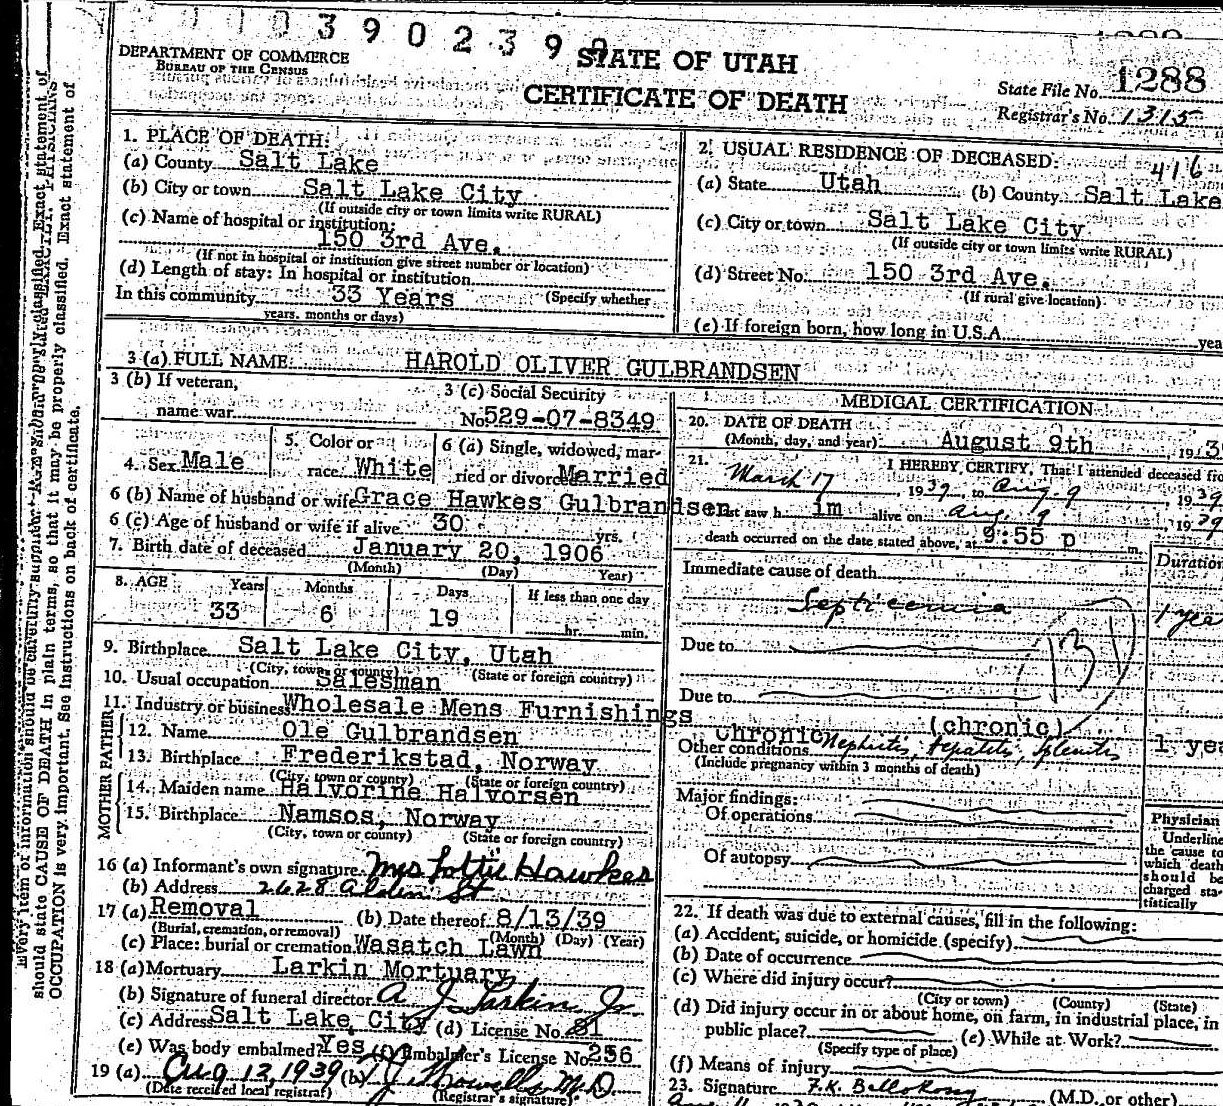 390239
DEPARTMENT OF COMMERCE
BUREAU OF THE CENSUS
STATE OF UTAH
CERTIFICATE OF DEATH
State File No. 1288
Registrar's No. 1315
1. PLACE OF DEATH:
(a) County Salt Lake
(b) City or town Salt Lake City
(If outside city or town limits write RURAL)
(c) Name of hospital or institution:
150 3rd Ave.
(If not in hospital or institution give street number or location)
(d) Length of stay: In hospital or institution
In this community 33 Years (Specify whether
years, months or days)
2. USUAL RESIDENCE OF DECEASED: 416
(a) State Utah (b) County Salt Lake
(c) City or town Salt Lake City
(If outside city or town limits write RURAL)
(d) Street No. 150 3rd Ave.
(If rural give location)
(e) If foreign born, how long in U.S.A. yea
3 (a) FULL NAME HAROLD OLIVER GULBRANDSEN
3 (b) If veteran,
name war
3 (c) Social Security
No. 529-07-8349
4. Sex Male
5. Color or
race White
6 (a) Single, widowed, mar-
ried or divorced Married
6 (b) Name of husband or wife Grace Hawkes Gulbrandsen
6 (c) Age of husband or wife if alive 30 yrs.
7. Birth date of deceased January 20, 1906
(Month) (Day) Year)
8. AGE Years Months Days If less than one day
33 6 19 hr. min.
9. Birthplace Salt Lake City, Utah
(City, town or county) (State or foreign country)
10. Usual occupation Salesman
11. Industry or business Wholesale Mens Furnishings
FATHER
12. Name Ole Gulbrandsen
13. Birthplace Frederikstad, Norway
(City, town or county) (State or foreign country)
MOTHER
14. Maiden name Halvorine Halvorsen
15. Birthplace Namsos, Norway
(City, town or county) (State or foreign country)
16 (a) Informant's own signature Mrs Lottie Hawkes
(b) Address 2628 Alden St
17 (a) Removal (b) Date thereof 8/13/39
(Burial, cremation, or removal) (Month) (Day) (Year)
(c) Place: burial or cremation Wasatch Lawn
18 (a) Mortuary Larkin Mortuary
(b) Signature of funeral director A J Larkin Jr
(c) Address Salt Lake City (d) License No. 81
(e) Was body embalmed? Yes (f) Embalmer's License No. 256
19 (a) Aug 12, 1939 (b) M.D.
(Date received local registrar) (Registrar's signature)
MEDICAL CERTIFICATION
20. DATE OF DEATH
(Month, day, and year) August 9th, 193
21. I HEREBY CERTIFY, That I attended deceased fro
March 17 1939, to Aug. 9, 1939
last saw h im alive on Aug. 9, 1939
death occurred on the date stated above, at 9:55 p m.
Duration
Immediate cause of death
Septicemia 1 yea
Due to
Due to
(chronic)
Chronic
Other conditions Nephritis, hepatitis, splenitis 1 yea
(Include pregnancy within 3 months of death)
Major findings:
Of operations
Of autopsy
Physician
Underline
the cause to
which death
should be
charged sta-
tistically
22. If death was due to external causes, fill in the following:
(a) Accident, suicide, or homicide (specify)
(b) Date of occurrence
(c) Where did injury occur?
(City or town) (County) (State)
(d) Did injury occur in or about home, on farm, in industrial place, in
public place? (e) While at Work?
(Specify type of place)
(f) Means of injury
23. Signature F.K. (M.D. or other)
should state CAUSE OF DEATH in plain terms, so that it may be properly classified. Exact statement of
OCCUPATION is very important. See instructions on back of certificate.